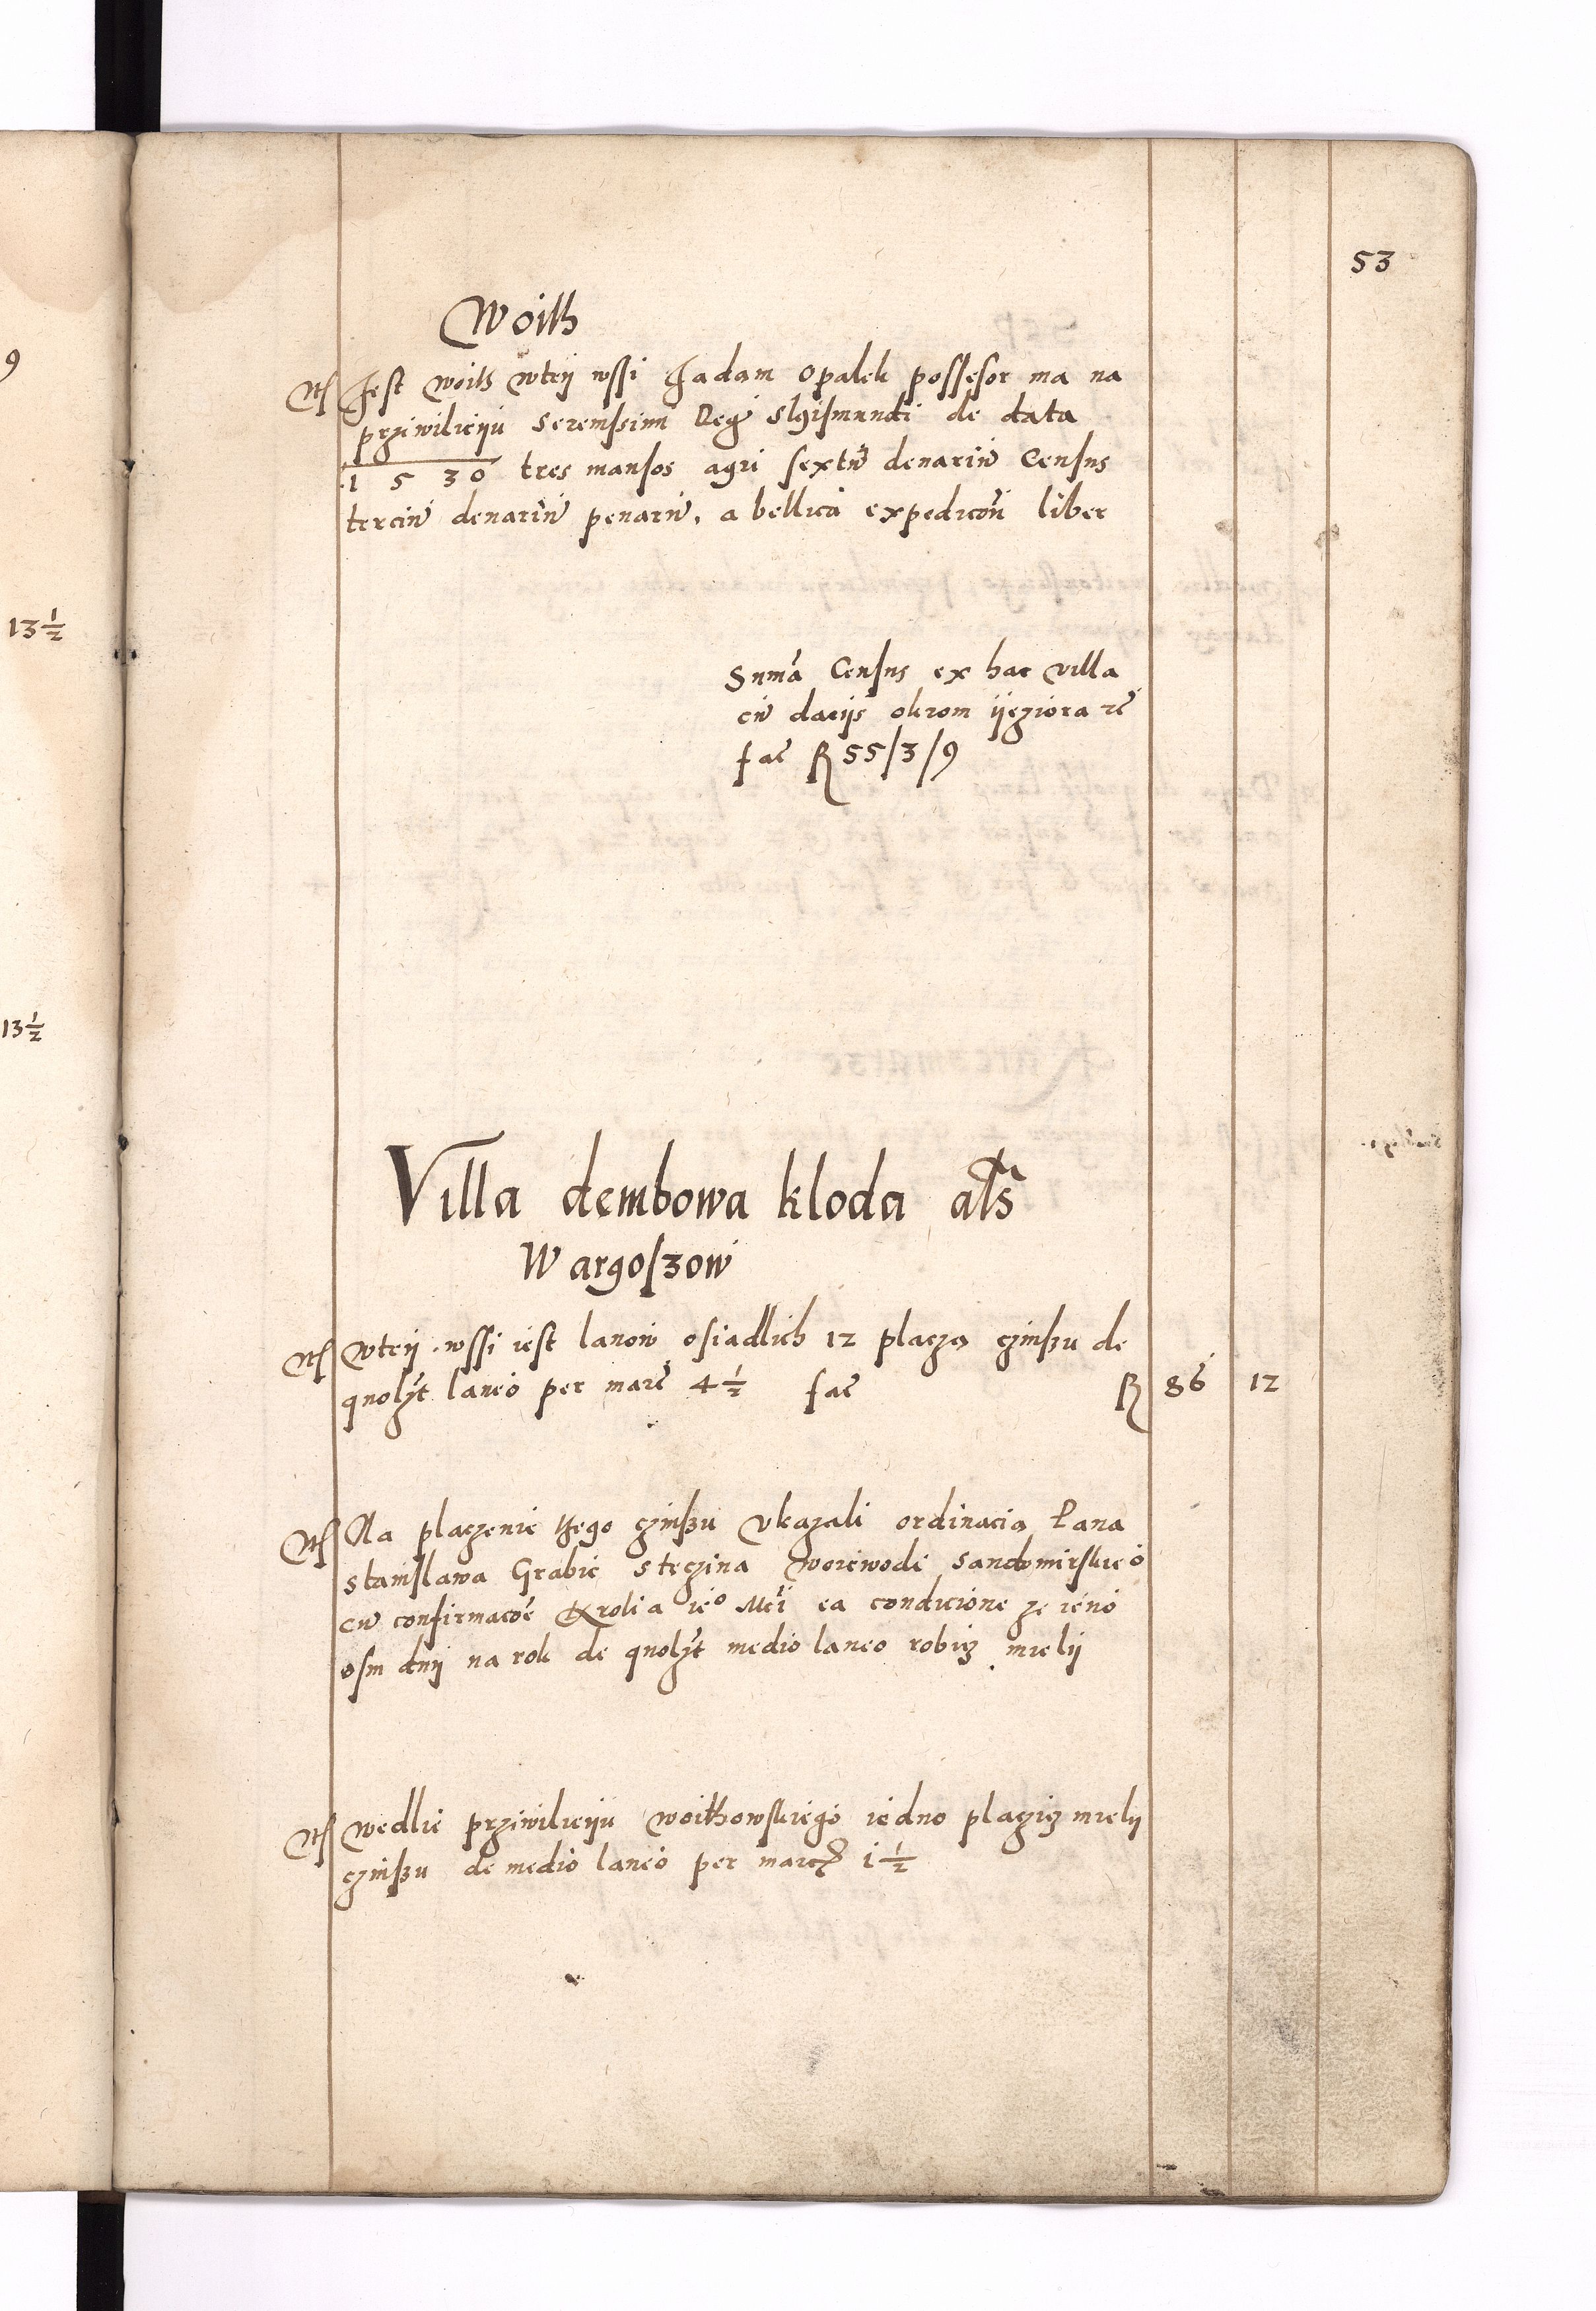 53
9
Woith
Nr Jest woith wtey wssi Jadam Opalek possesor ma na
przywilieyu Serenissimi Reg Sigismundi de data
1530 tres mansos agri sextū denariū Census
terciū denariū penarū, a bellica expedicōi liber
13½
Suma Census ex hac villa
cū daciis okrom yeziora rc
fac R 55/3/9
13½
Villa dembowa kloda als
Wargoszow
Nr wtey wssi iest lanow osiadlich 12 placzą czinszu de
quolzt laneo per marc 4½ fac R 86 12
Nr Na placzenie tzego czinszu vkazali ordinacią Pana
Stanislawa Grabie Stęczina woiewodi Sandomirskieo
cū confirmacoē Krolia ieo Mci ea condicione ze ieno
osm dny na rok de quolzt medio laneo robicz miely
Nr wedlie prziwilieyu woithowskiego iedno placzicz miely
czinszu de medio laneo per marc 1½